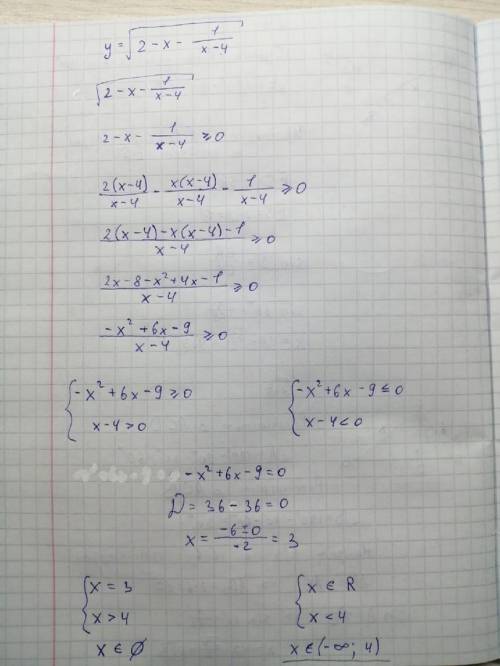 y = √(2 - x - 1/(x-4))
√(2 - x - 1/(x-4))
2 - x - 1/(x-4) ⩾ 0
2(x-4)/(x-4) - x(x-4)/(x-4) - 1/(x-4) ⩾ 0
(2(x-4) - x(x-4) - 1)/(x-4) ⩾ 0
(2x - 8 - x² + 4x - 1)/(x-4) ⩾ 0
(-x² + 6x - 9)/(x-4) ⩾ 0
{ -x² + 6x - 9 ⩾ 0
x - 4 > 0
{ -x² + 6x - 9 ≤ 0
x - 4 < 0
-x² + 6x - 9 = 0
D = 36 - 36 = 0
x = (-6 ± 0)/(-2) = 3
{ x = 3
x > 4
x ∈ ∅
{ x ∈ R
x < 4
x ∈ (-∞; 4)